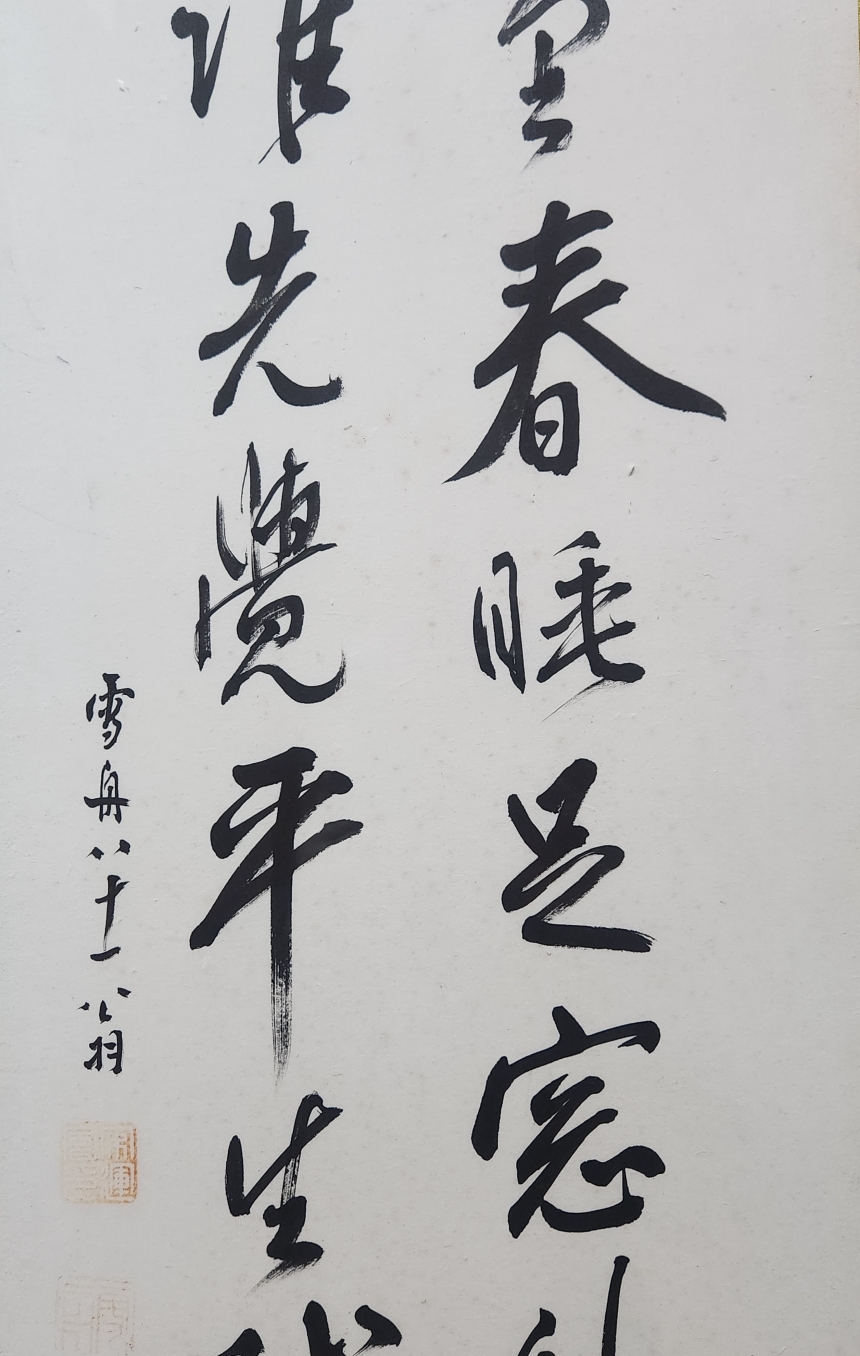 堂春睡足窓
誰先覺平生
雪舟八十一翁